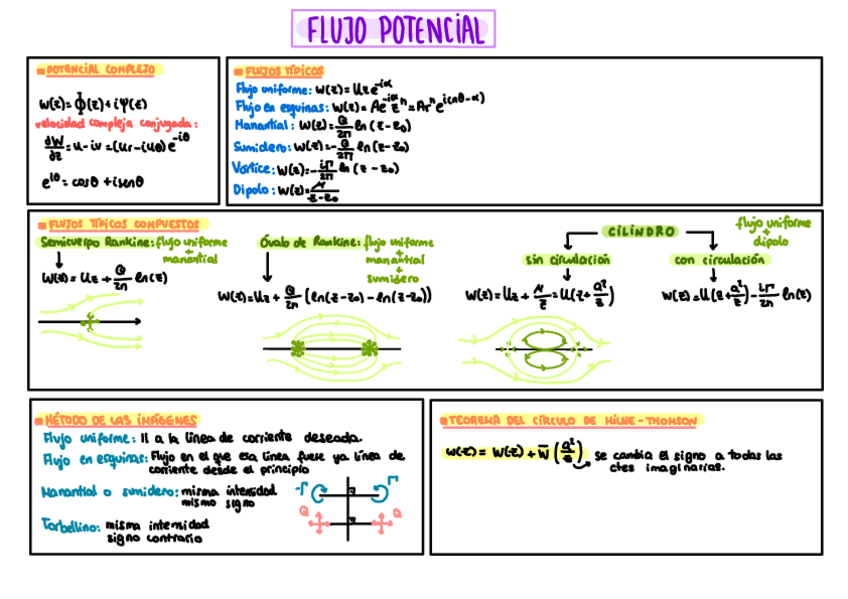 FLUJO POTENCIAL
POTENCIAL COMPLEJO
W(z)=ϕ(z)+iψ(z)
velocidad compleja conjugada:
dW/dz = u-iv = (ur-iuθ)e^-iθ
e^iθ = cosθ + isenθ
FLUJOS TÍPICOS
Flujo uniforme: W(z)=Uze^-iα
Flujo en esquinas: W(z)= Ae^-iα z^n = Ar^n e^i(nθ-α)
Manantial: W(z)= Q/2π ln(z-z₀)
Sumidero: W(z)=- Q/2π ln(z-z₀)
Vórtice: W(z)=- iΓ/2π ln(z-z₀)
Dipolo: W(z)= μ/z-z₀
FLUJOS TÍPICOS COMPUESTOS
Semicuerpo Rankine: flujo uniforme
+
manantial
W(z)= Uz + Q/2π ln(z)
Óvalo de Rankine: flujo uniforme
+
manantial
+
sumidero
W(z)=Uz + Q/2π (ln(z-z₀) - ln(z-z₀))
CILINDRO
flujo uniforme
+
dipolo
sin circulación
con circulación
W(z)=Uz + μ/z = U(z+ a²/z)
W(z)=U(z+ a²/z) - iΓ/2π ln(z)
MÉTODO DE LAS IMÁGENES
Flujo uniforme: II a la línea de corriente deseada.
Flujo en esquinas: Flujo en el que esa línea fuese ya línea de
corriente desde el principio
Manantial o sumidero: misma intensidad
mismo signo
-Γ Γ
Q Q
Torbellino: misma intensidad
signo contrario
TEOREMA DEL CÍRCULO DE MILNE-THOMSON
W(z) = W(z) + W̅ (a²/z) Se cambia el signo a todas las
ctes imaginarias.